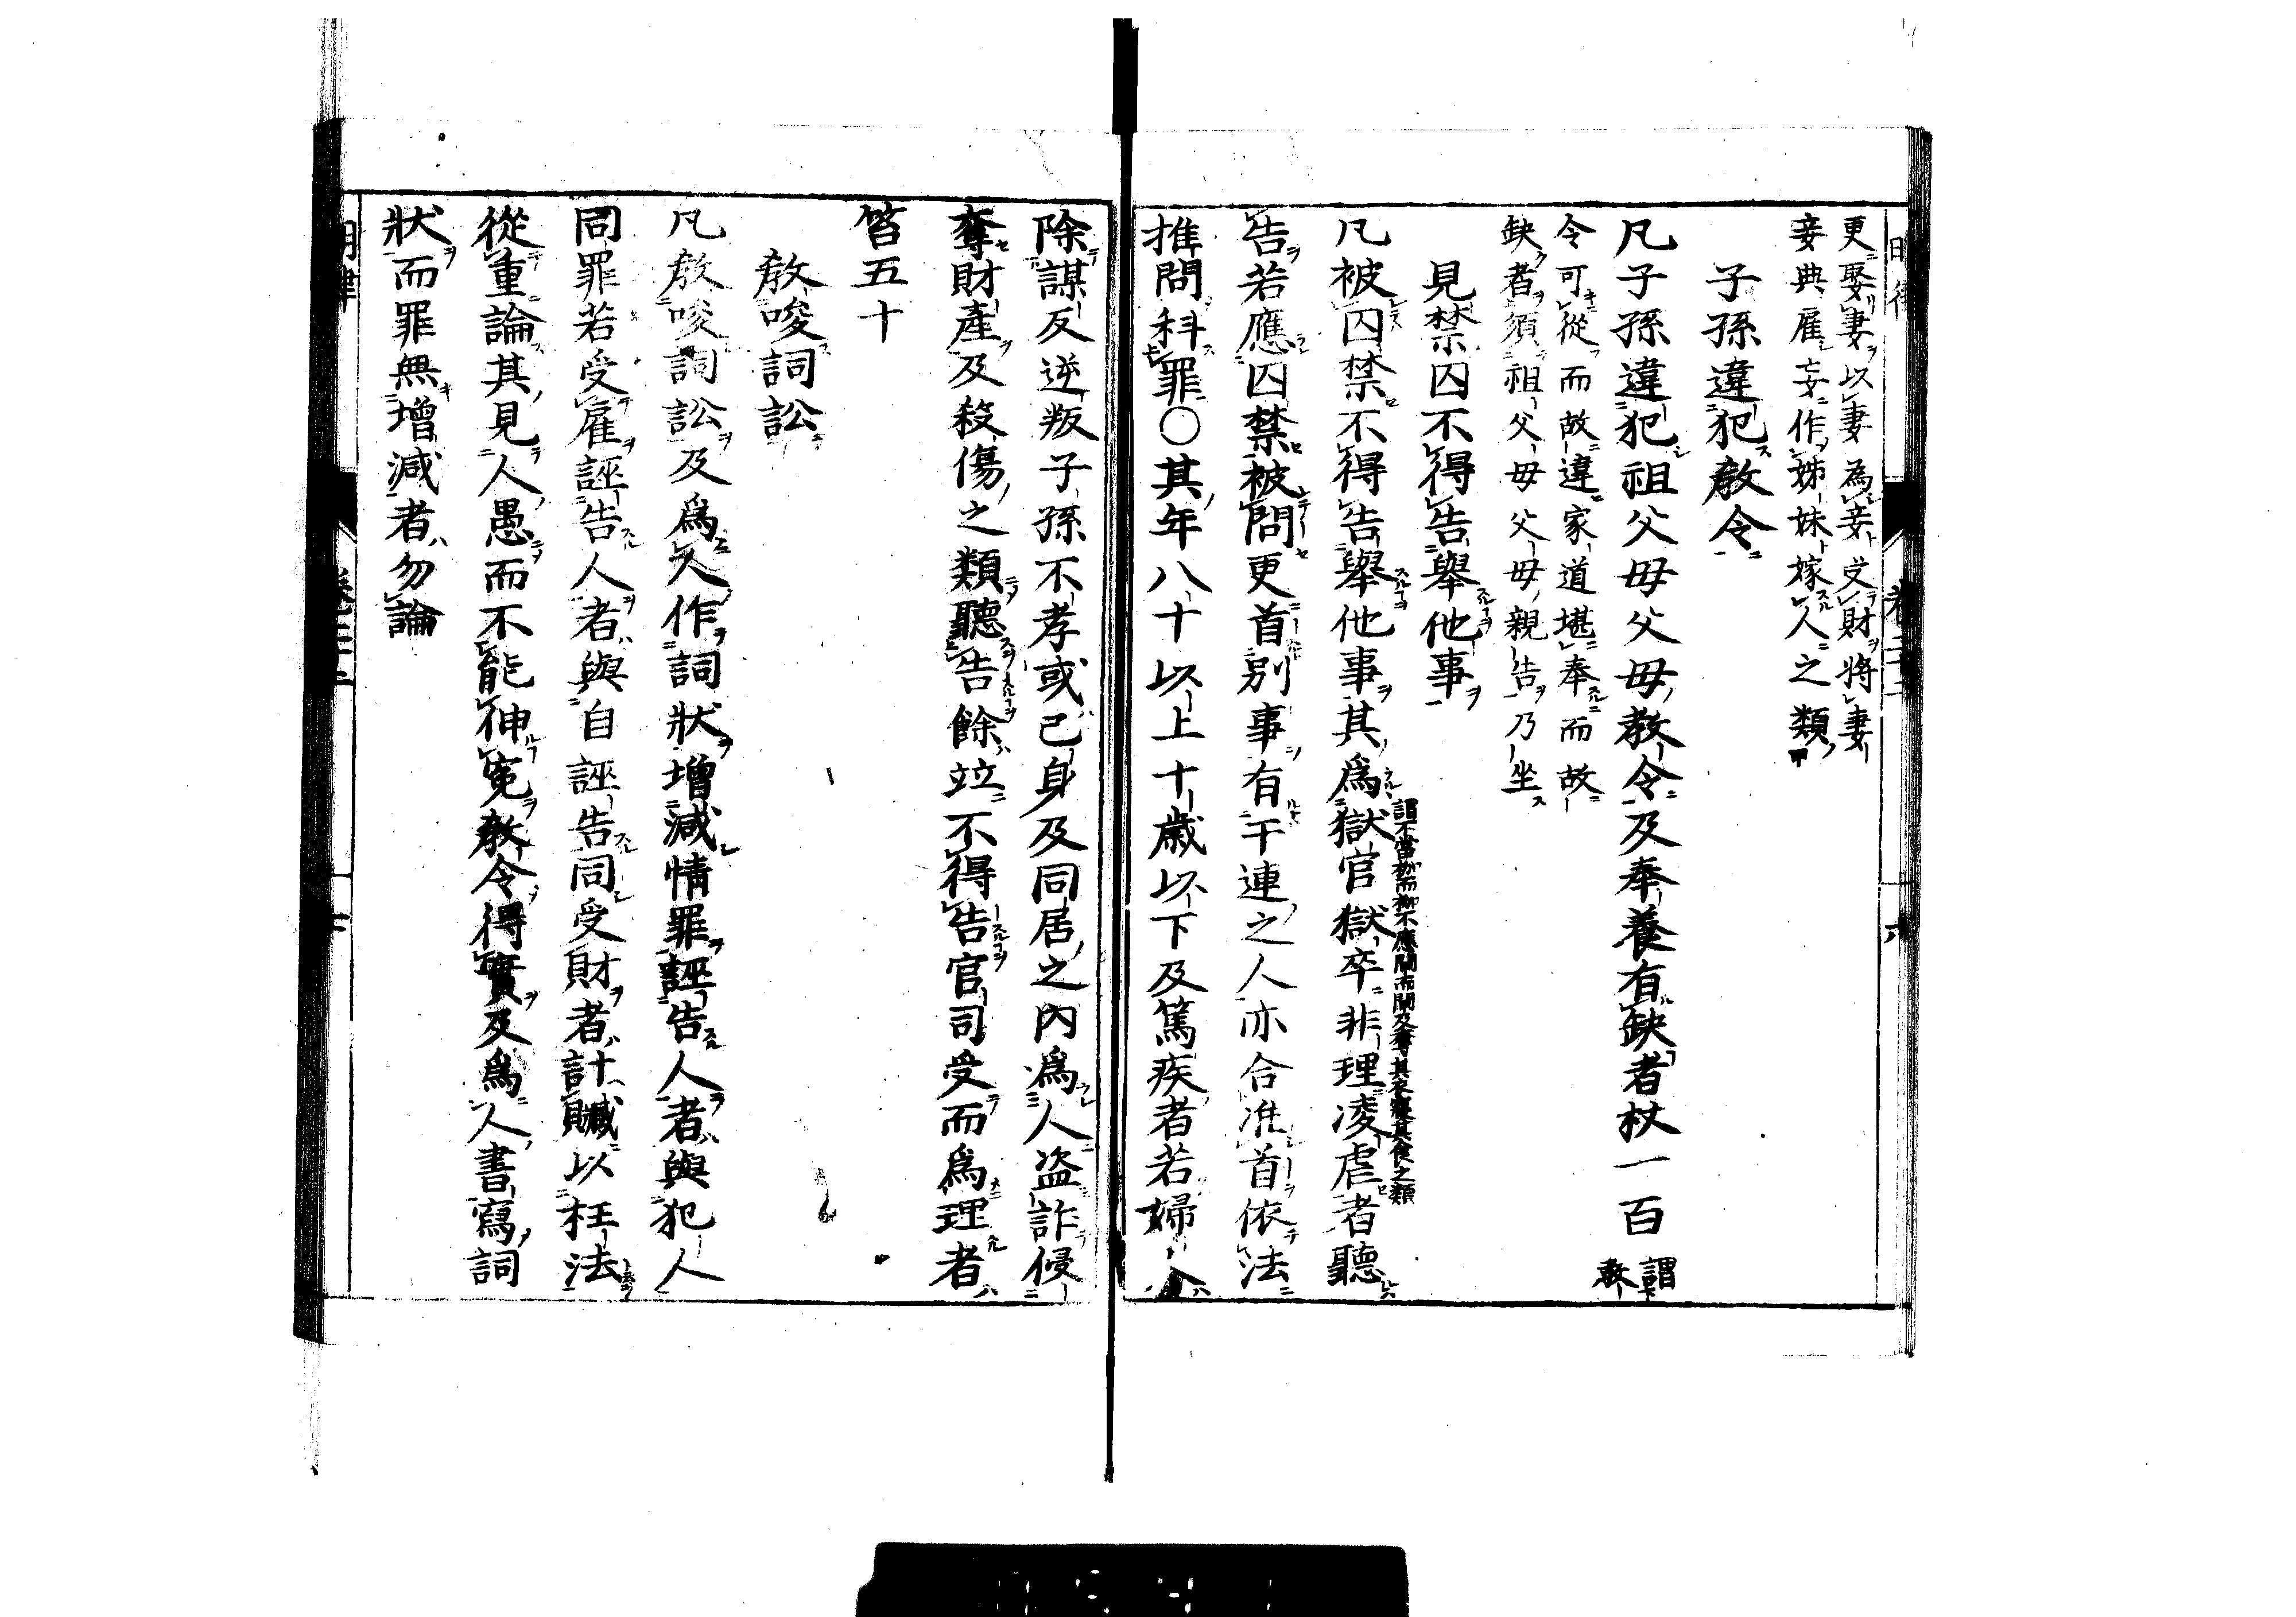 更娶妻以妻為妾受財將妻
妾典雇妄作姊妹嫁人之類
子孫違犯教令
凡子孫違犯祖父母父母教令及奉養有缺者杖一百
謂教
令可從而故違家道堪奉而故
缺者須祖父母父母親告乃坐
見禁囚不得告舉他事
凡被囚禁不得告舉他事其爲獄官獄卒非理凌虐者聽
謂不當枷而枷不應閉而閉及奪其衣糧其食之類
告若應囚禁被問更首別事有干連之人亦合准首依法
推問科罪〇其年八十以上十歲以下及篤疾者若婦人
除謀反逆叛子孫不孝或己身及同居之內爲人盗詐侵
奪財產及殺傷之類聽告餘竝不得告官司受而爲理者
笞五十
教唆詞訟
凡教唆詞訟及爲人作詞狀增減情罪誣告人者與犯人
同罪若受雇誣告人者與自誣告同受財者計贓以枉法
從重論其見人愚而不能伸寃教令得實及爲人書寫詞
狀而罪無增減者勿論